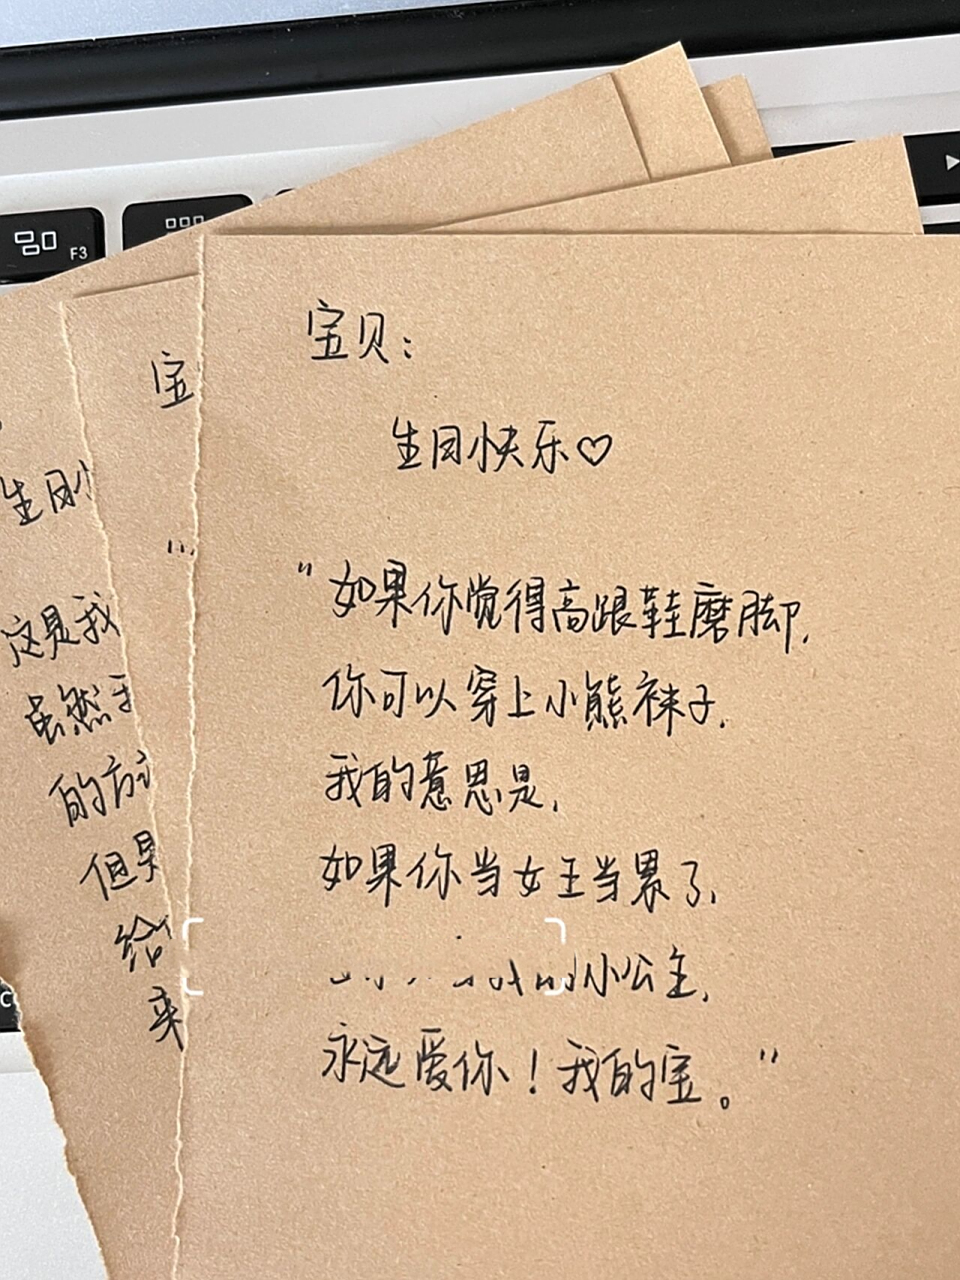 F3
宝贝：
生日快乐♡
"如果你觉得高跟鞋磨脚，
你可以穿上小熊袜子，
我的意思是，
如果你当女王当累了，
小公主，
永远爱你！我的宝。"
宝
生日
这是我
虽然
的方
但是
给
来